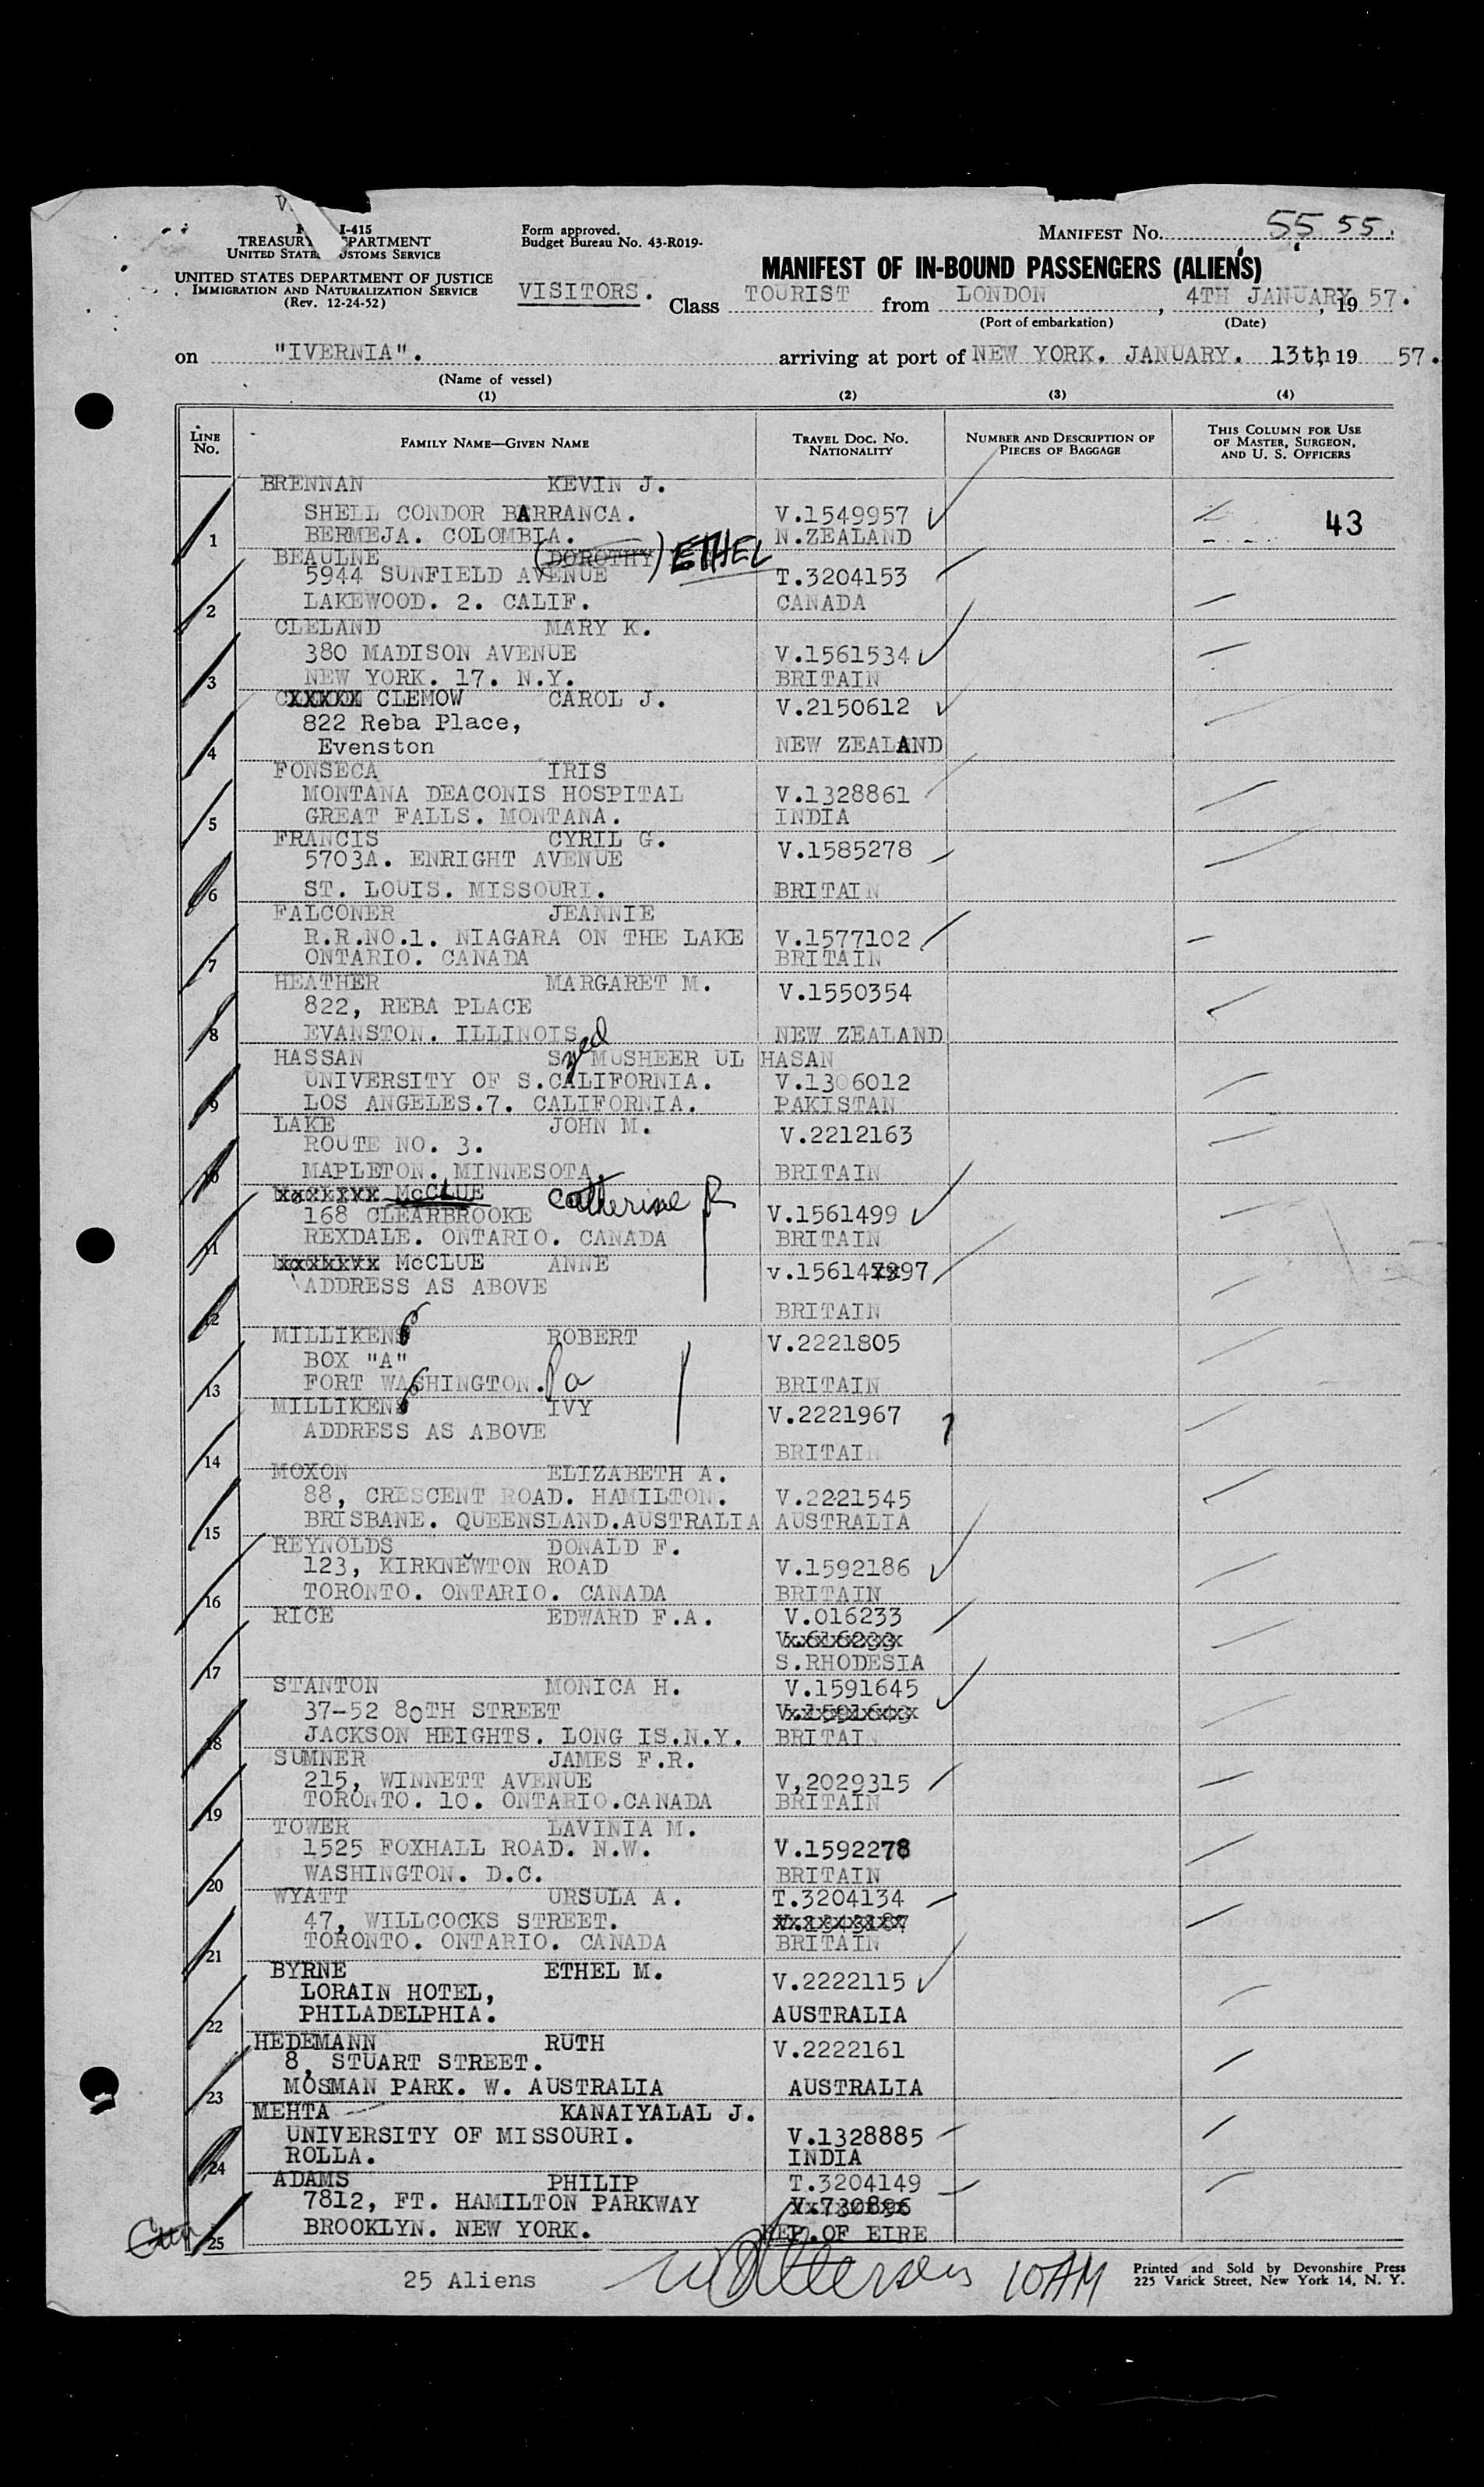 I-415
TREASURY DEPARTMENT
UNITED STATES CUSTOMS SERVICE
UNITED STATES DEPARTMENT OF JUSTICE
IMMIGRATION AND NATURALIZATION SERVICE
(Rev. 12-24-52)
Form approved.
Budget Bureau No. 43-R019-
MANIFEST NO. 55 55.
MANIFEST OF IN-BOUND PASSENGERS (ALIENS)
VISITORS. Class TOURIST from LONDON, 4TH JANUARY, 19 57.
(Port of embarkation) (Date)
on "IVERNIA". arriving at port of NEW YORK. JANUARY. 13th, 19 57.
(Name of vessel)
(1) (2) (3) (4)
LINE NO. FAMILY NAME—GIVEN NAME TRAVEL DOC. NO. NATIONALITY NUMBER AND DESCRIPTION OF PIECES OF BAGGAGE THIS COLUMN FOR USE OF MASTER, SURGEON, AND U. S. OFFICERS
BRENNAN KEVIN J.
SHELL CONDOR BARRANCA. V.1549957
1 BERMEJA. COLOMBIA. N.ZEALAND 43
BEAULNE (DOROTHY) ETHEL
5944 SUNFIELD AVENUE T.3204153
2 LAKEWOOD. 2. CALIF. CANADA
CLELAND MARY K.
380 MADISON AVENUE V.1561534
3 NEW YORK. 17. N.Y. BRITAIN
CXXXXX CLEMOW CAROL J. V.2150612
822 Reba Place,
4 Evenston NEW ZEALAND
FONSECA IRIS
MONTANA DEACONIS HOSPITAL V.1328861
5 GREAT FALLS. MONTANA. INDIA
FRANCIS CYRIL G.
5703A. ENRIGHT AVENUE V.1585278
6 ST. LOUIS. MISSOURI. BRITAIN
FALCONER JEANNIE
R.R.NO.1. NIAGARA ON THE LAKE V.1577102
7 ONTARIO. CANADA BRITAIN
HEATHER MARGARET M. V.1550354
822, REBA PLACE
8 EVANSTON. ILLINOIS NEW ZEALAND
HASSAN Syed MUSHEER UL HASAN
UNIVERSITY OF S.CALIFORNIA. V.1306012
9 LOS ANGELES.7. CALIFORNIA. PAKISTAN
LAKE JOHN M. V.2212163
ROUTE NO. 3.
10 MAPLETON. MINNESOTA. BRITAIN
McCLUE Catherine R
168 CLEARBROOKE V.1561499
11 REXDALE. ONTARIO. CANADA BRITAIN
McCLUE ANNE v.15614xx97
ADDRESS AS ABOVE
12 BRITAIN
MILLIKEN ROBERT V.2221805
BOX "A"
13 FORT WASHINGTON. Pa BRITAIN
MILLIKEN IVY V.2221967
ADDRESS AS ABOVE
14 BRITAIN
MOXON ELIZABETH A.
88, CRESCENT ROAD. HAMILTON. V.2221545
15 BRISBANE. QUEENSLAND.AUSTRALIA AUSTRALIA
REYNOLDS DONALD F.
123, KIRKNEWTON ROAD V.1592186
16 TORONTO. ONTARIO. CANADA BRITAIN
RICE EDWARD F.A. V.016233
V.616233
17 S.RHODESIA
STANTON MONICA H. V.1591645
37-52 80TH STREET V.1591643
18 JACKSON HEIGHTS. LONG IS.N.Y. BRITAIN
SUMNER JAMES F.R.
215, WINNETT AVENUE V,2029315
19 TORONTO. 10. ONTARIO.CANADA BRITAIN
TOWER LAVINIA M.
1525 FOXHALL ROAD. N.W. V.1592278
20 WASHINGTON. D.C. BRITAIN
WYATT URSULA A. T.3204134
47, WILLCOCKS STREET.
21 TORONTO. ONTARIO. CANADA BRITAIN
BYRNE ETHEL M. V.2222115
LORAIN HOTEL,
22 PHILADELPHIA. AUSTRALIA
HEDEMANN RUTH V.2222161
8, STUART STREET.
23 MOSMAN PARK. W. AUSTRALIA AUSTRALIA
MEHTA KANAIYALAL J.
UNIVERSITY OF MISSOURI. V.1328885
24 ROLLA. INDIA
ADAMS PHILIP T.3204149
7812, FT. HAMILTON PARKWAY V.730896
25 BROOKLYN. NEW YORK. REP.OF EIRE
25 Aliens 10AM
Printed and Sold by Devonshire Press
225 Varick Street, New York 14, N. Y.